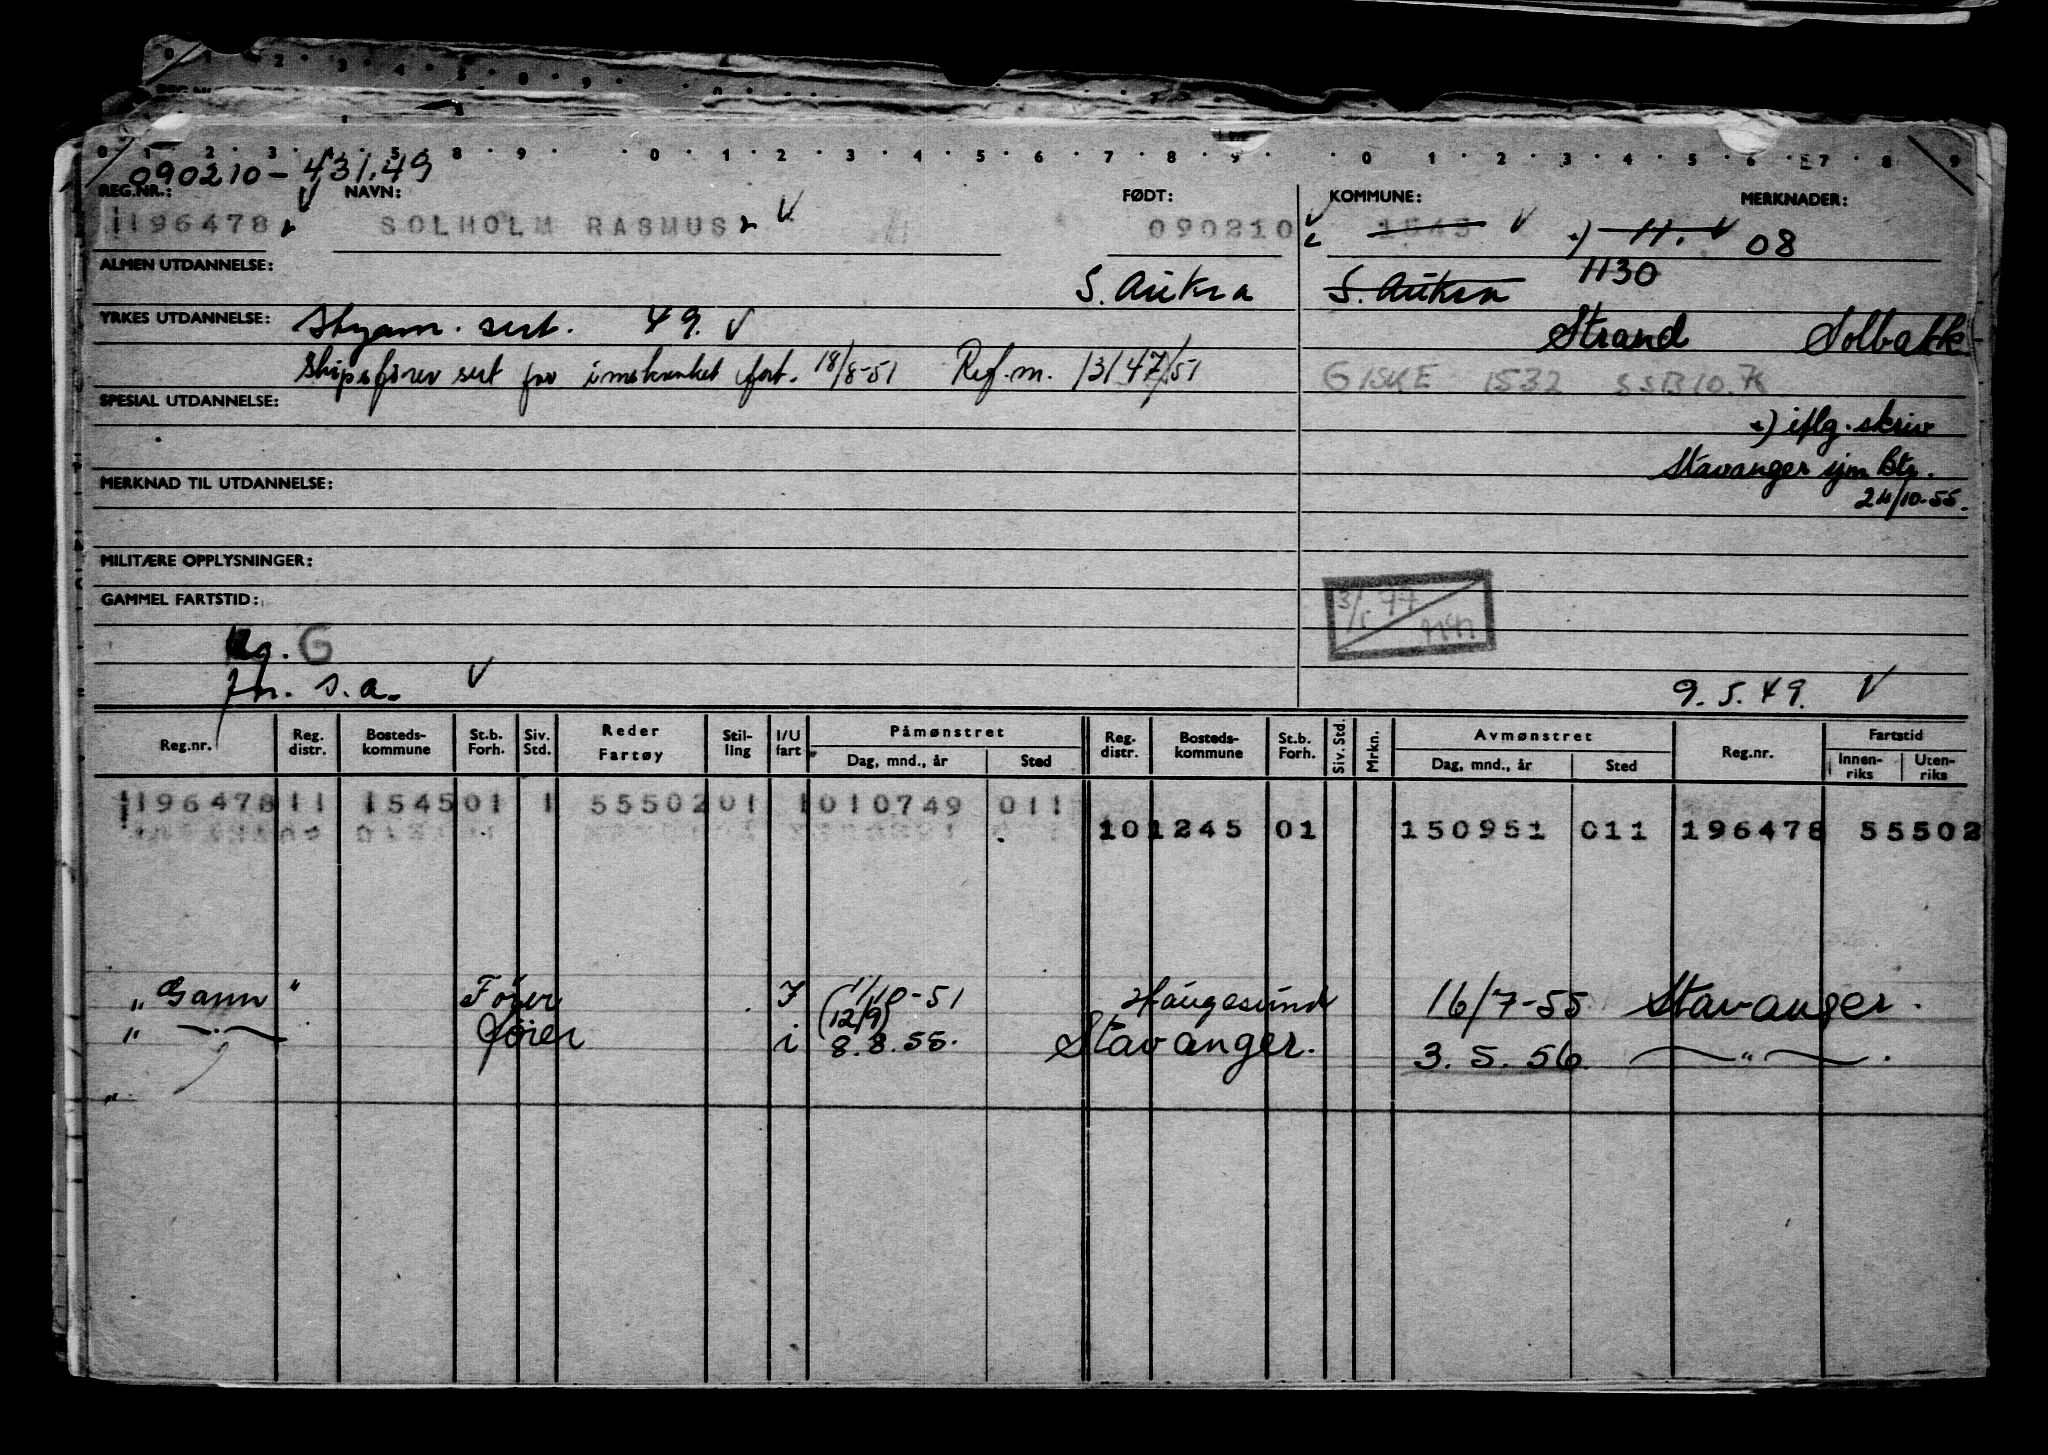 0 1 2 3 4 5 8 9 0 1 2 3 4 5 6 7 8 9 0 1 2 3 4 5 6 E7 8 9
090210-431.49
REG.NR.: NAVN: FØDT: KOMMUNE: MERKNADER:
196478 SOLHOLM RASMUS 090210 1545 *) 11. 08
1130
ALMEN UTDANNELSE:
S. Aukra S. Aukra
YRKES UTDANNELSE: Styrm. sert. 49. Strand Solbakk
Skipsfører sert for innskrenket fart. 18/8-51 Ref.m. 13147/51 GISKE 1532 SSB10.7K
SPESIAL UTDANNELSE:
*) iflg. skriv
Stavanger sjm ktr.
24/10-55.
MERKNAD TIL UTDANNELSE:
MILITÆRE OPPLYSNINGER:
GAMMEL FARTSTID:
G
s.a.
9.5.49.
Reg.nr. Reg. distr. Bosteds-kommune St.b. Forh. Siv. Std. Reder Fartøy Stil-ling I/U fart Påmønstret Dag, mnd., år Sted Reg. distr. Bosteds-kommune St.b. Forh. Siv. Std. Mrkn. Avmønstret Dag, mnd., år Sted Reg.nr. Fartstid Innen-riks Uten-riks
196478 11 1545 01 1 55502 01 1 010749 011
10 1245 01 150951 011 196478 55502
"Gann" Fører I 1/10-51 Haugesund 16/7-55 Stavanger.
(12/9)
" — " fører i 8.8.55. Stavanger. 3.5.56. — " — .
"